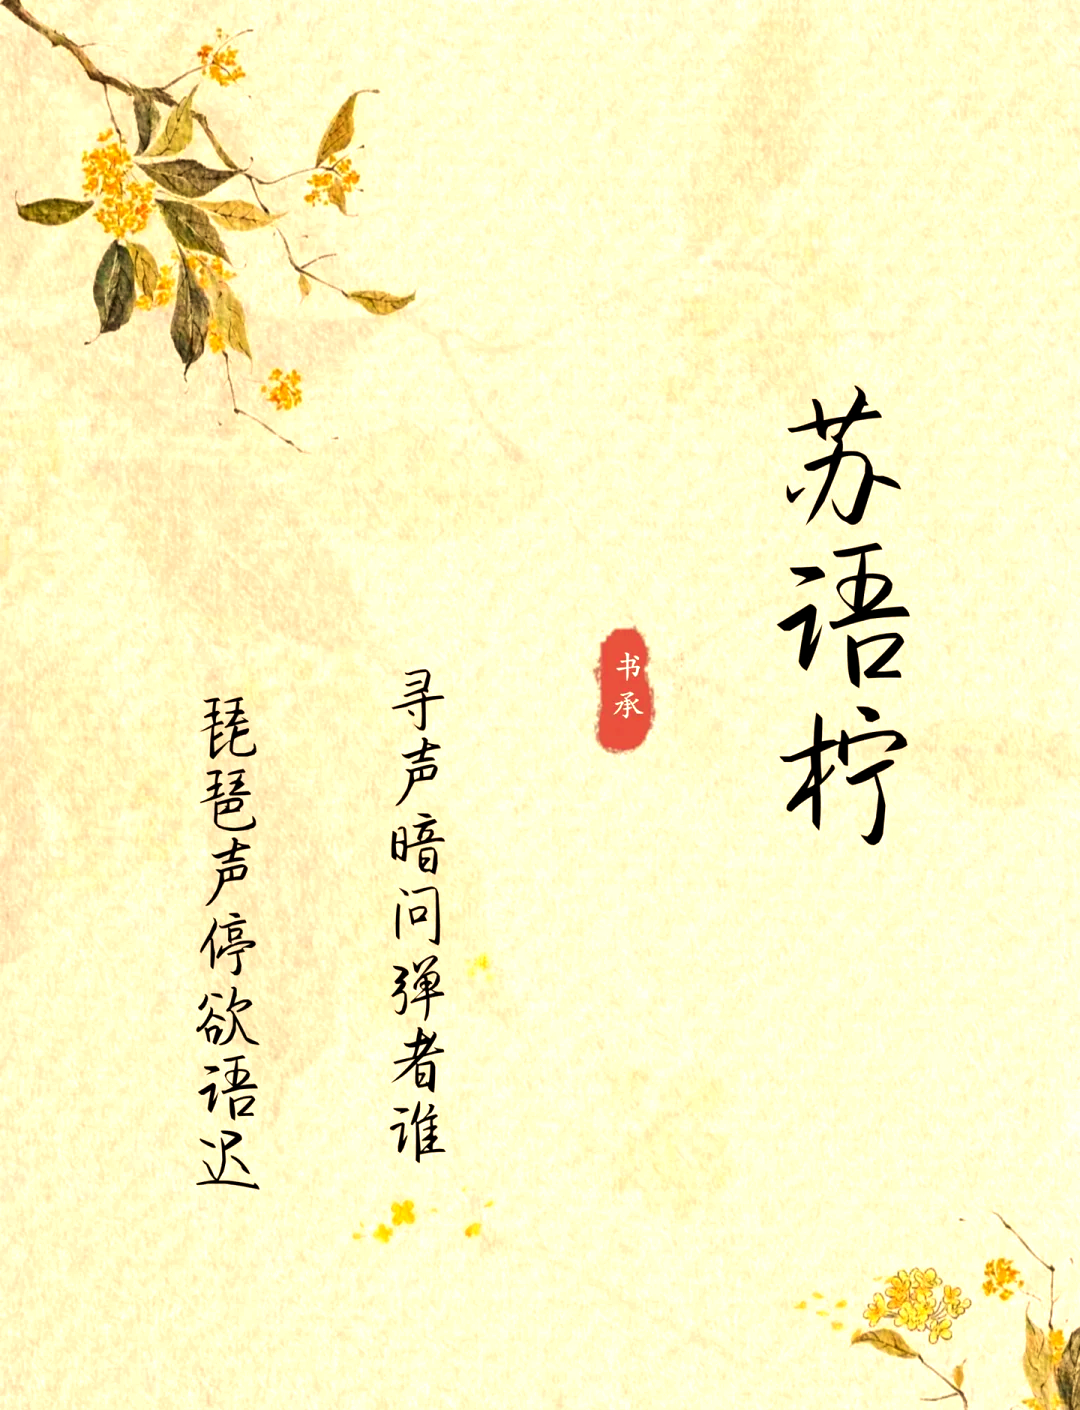 苏语柠
书承
寻声暗问弹者谁
琵琶声停欲语迟